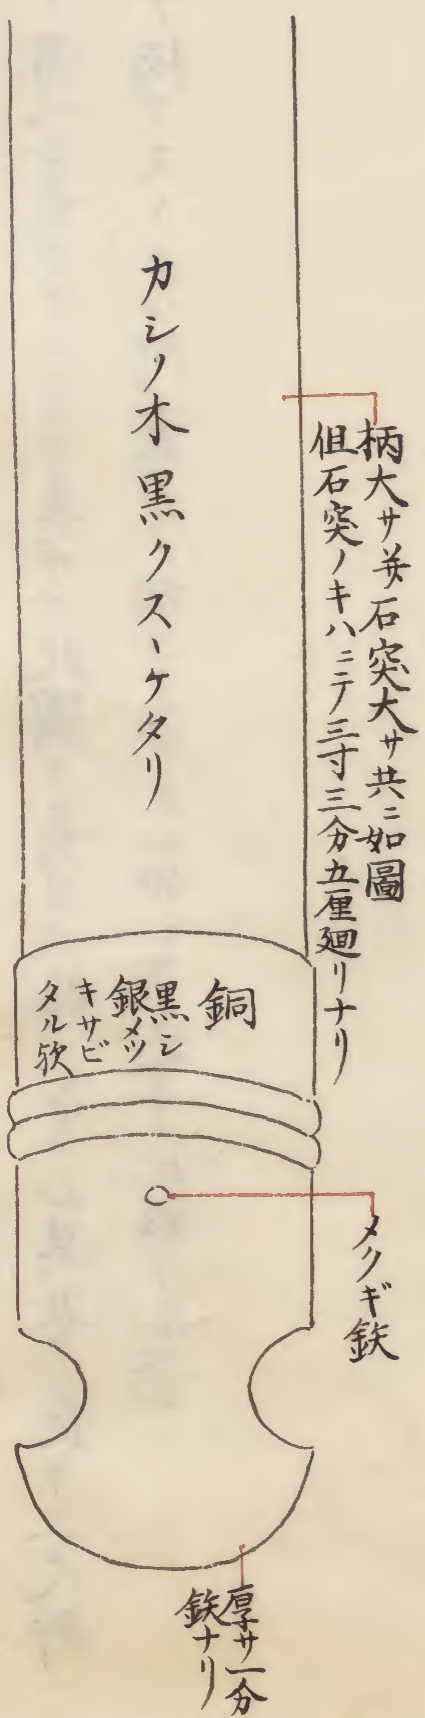 柄大サ并石突大サ共ニ如圖
但石突ノキハニテ三寸三分五厘廻リナリ
カシノ木黒クスヽケタリ
銅
黒シ
銀メツ
キサビ
タル欤
メクギ鉄
厚サ一分
鉄ナリ